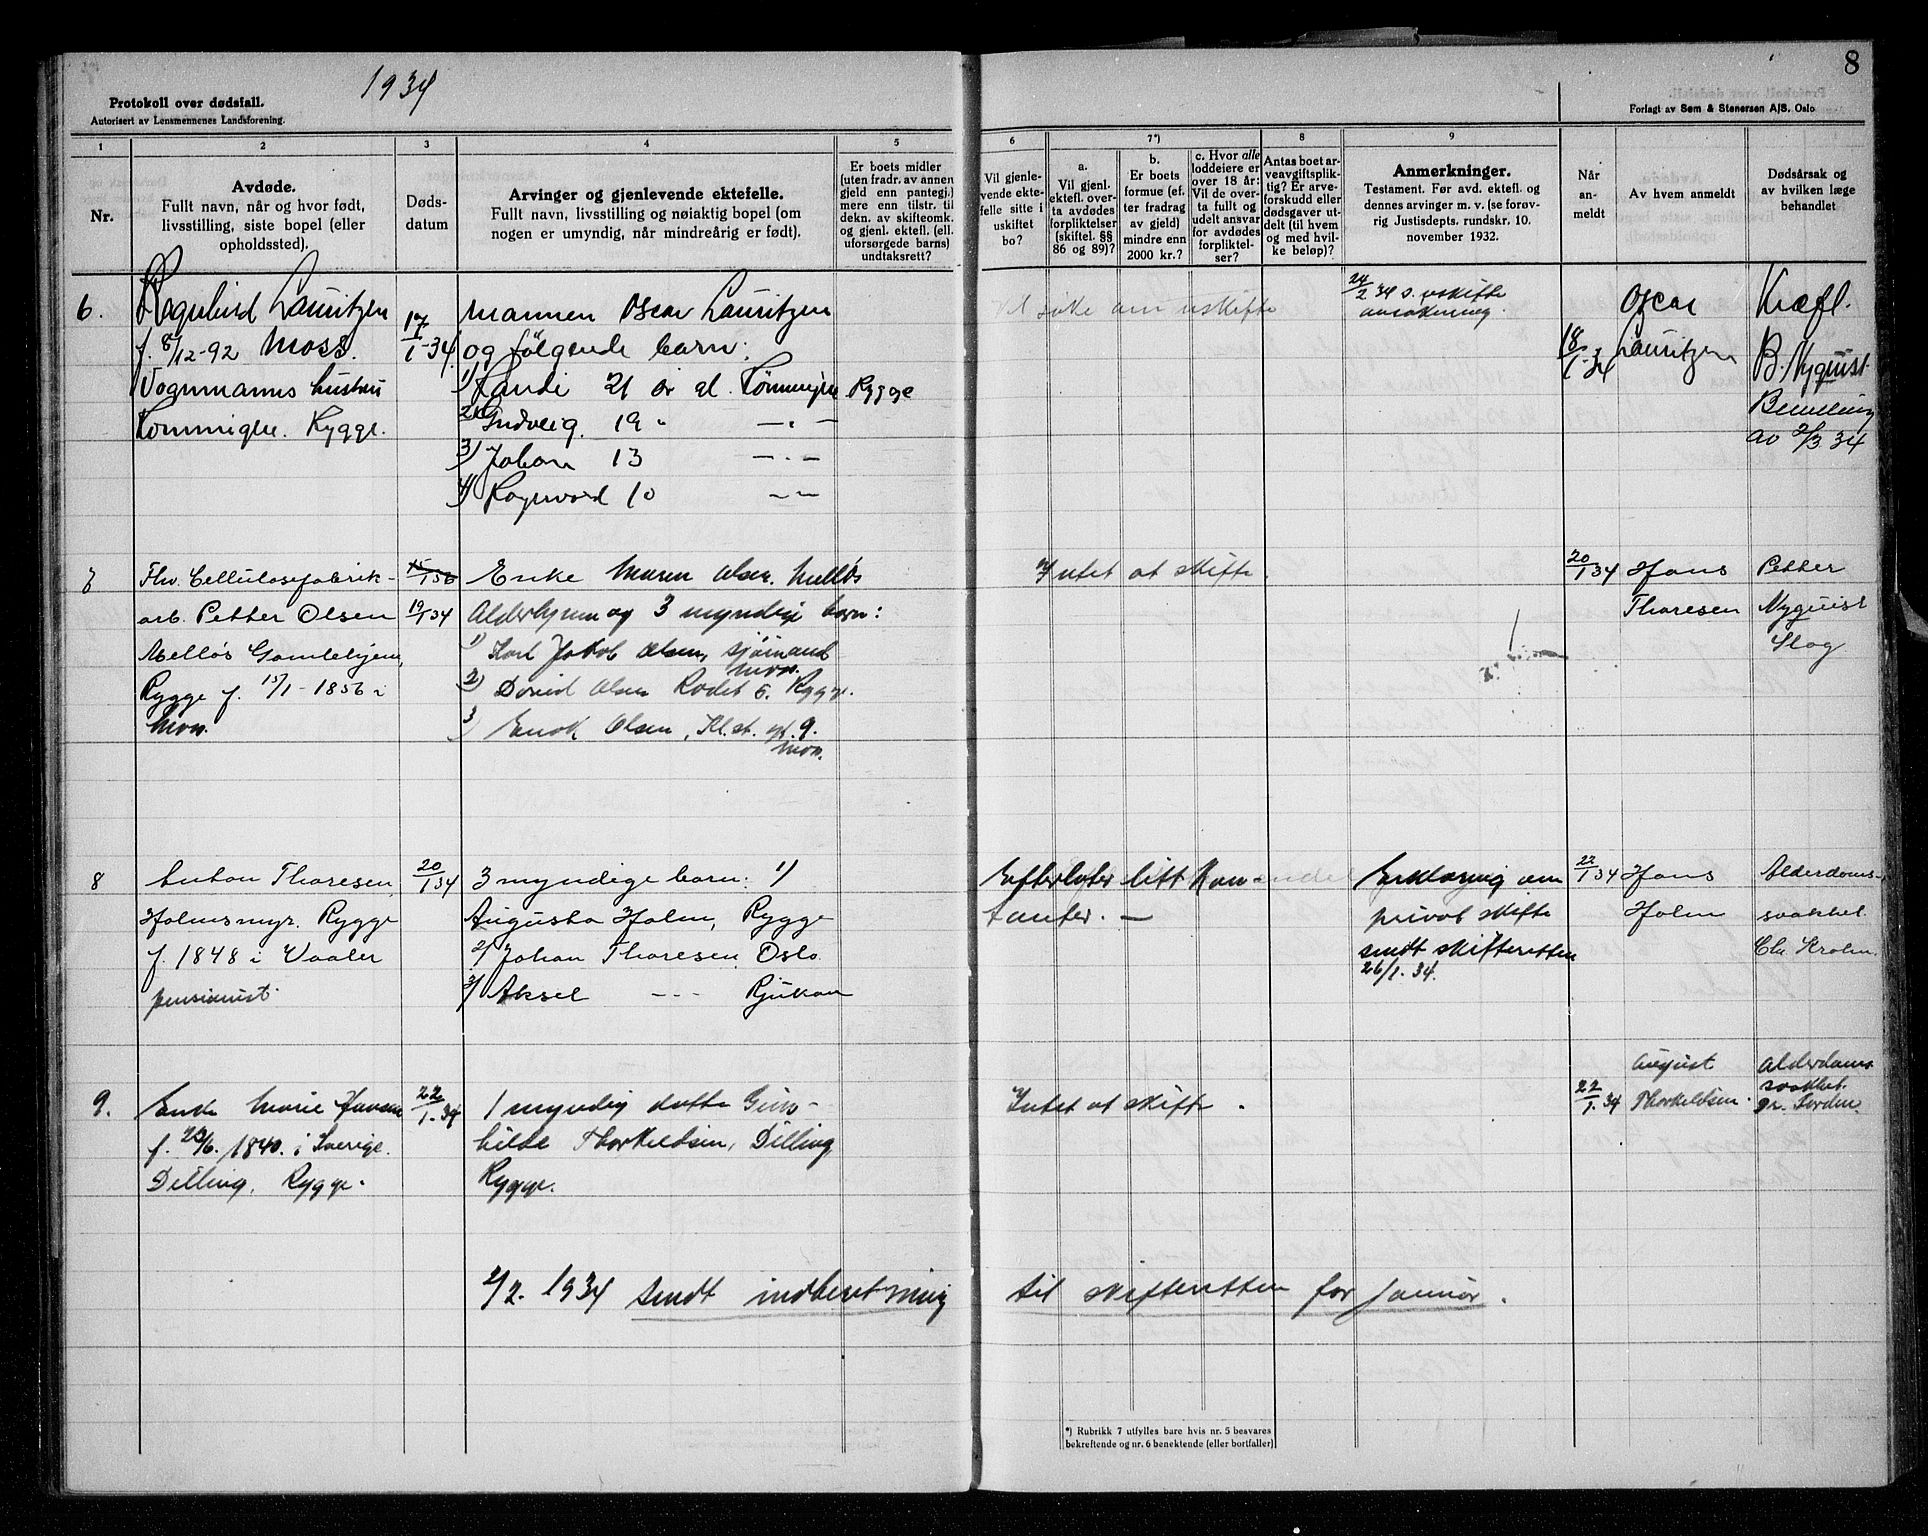 1934
8
Protokoll over dødsfall.
Autorisert av Lensmennenes Landsforening.
Forlagt av Sem & Stenersen A/S, Oslo
1
2
3
4
5
6
7*)
8
9
Nr.
Avdøde.
Fullt navn, når og hvor født,
livsstilling, siste bopel (eller
opholdssted).
Døds-
datum
Arvinger og gjenlevende ektefelle.
Fullt navn, livsstilling og nøiaktig bopel (om
nogen er umyndig, når mindreårig er født).
Er boets midler
(uten fradr. av annen
gjeld enn pantegj.)
mere enn tilstr. til
dekn. av skifteomk.
og gjenl. ektefl. (ell.
uforsørgede barns)
undtaksrett?
Vil gjenle-
vende ekte-
felle sitte i
uskiftet
bo?
a.
Vil gjenl.
ektefl. over-
ta avdødes
forpliktelser
(skiftel. §§
86 og 89)?
b.
Er boets
formue (ef.
ter fradrag
av gjeld)
mindre enn
2000 kr.?
c. Hvor alle
loddeiere er
over 18 år:
Vil de over-
ta fullt og
udelt ansvar
for avdødes
forpliktel-
ser?
Antas boet ar-
veavgiftsplik-
tig? Er arve-
forskudd eller
dødsgaver ut-
delt (til hvem
og med hvil-
ke beløp)?
Anmerkninger.
Testament. Før avd. ektefl. og
dennes arvinger m. v. (se forøv-
rig Justisdepts. rundskr. 10.
november 1932.
Når
an-
meldt
Av hvem anmeldt
Dødsårsak og
av hvilken læge
behandlet
6.
Ragnhild Lauritzen
f. 8/12-92 Moss.
Vognmanns hustru
Rygge.
17/1-34
Mannen Oscar Lauritzen
og følgende barn:
1) Randi 21 år gl. Rygge
2) 19 " — " —
3) Johan 13 — " —
4) Ragnvard 10 — " —
Vil søke om uskifte
24/2 34 s. uskifte
ansøkning.
18/1-34
Oscar
Lauritzen
Kræft.
B. Nyquist.
Bevilling
av 2/3 34
7
Fhv. Cellulosefabrik-
arb. Petter Olsen
Melløs Gamlehjem,
Rygge f. 15/1-1856 i
Moss.
15/1 56
19/1 34
Enke Maren Olsen. Melløs
Alderhjem og 3 myndige barn:
1) Karl Jakob Olsen, sjømand
Moss.
2) David Olsen Rødet 6. Rygge.
3) Enok Olsen, Kl. st. gt. 9.
Moss.
Intet at skifte.
20/1 34
Hans
Thoresen
Petter
Nyquist
Slag
8
Anton Thoresen,
Holmsmyr. Rygge
f. 1848 i Vaaler
pensionist.
20/1 34
3 myndige barn: 1)
Augusta Holm, Rygge
2) Johan Thoresen, Oslo.
3) Aksel — - - Rjukan
Efterlater litt kon-
tanter. —
Erklæring om
privat skifte
sendt skifteretten
26/1. 34.
22/1 34
Hans
Holm
Alderdoms-
svakhet.
9.
Enke Marie Hansen
f. 23/6. 1840. i Sverige.
Dilling, Rygge.
22/1. 34
1 myndig datter Gun-
hilde Thorkildsen, Dilling,
Rygge.
Intet at skifte.
22/1. 34
August
Thorkildsen.
Alderdoms
svakhet.
2/2. 1934 sendt indberetning til skifteretten for januar.
*) Rubrikk 7 utfylles bare hvis nr. 5 besvares
bekreftende og nr. 6 benektende (eller bortfaller)